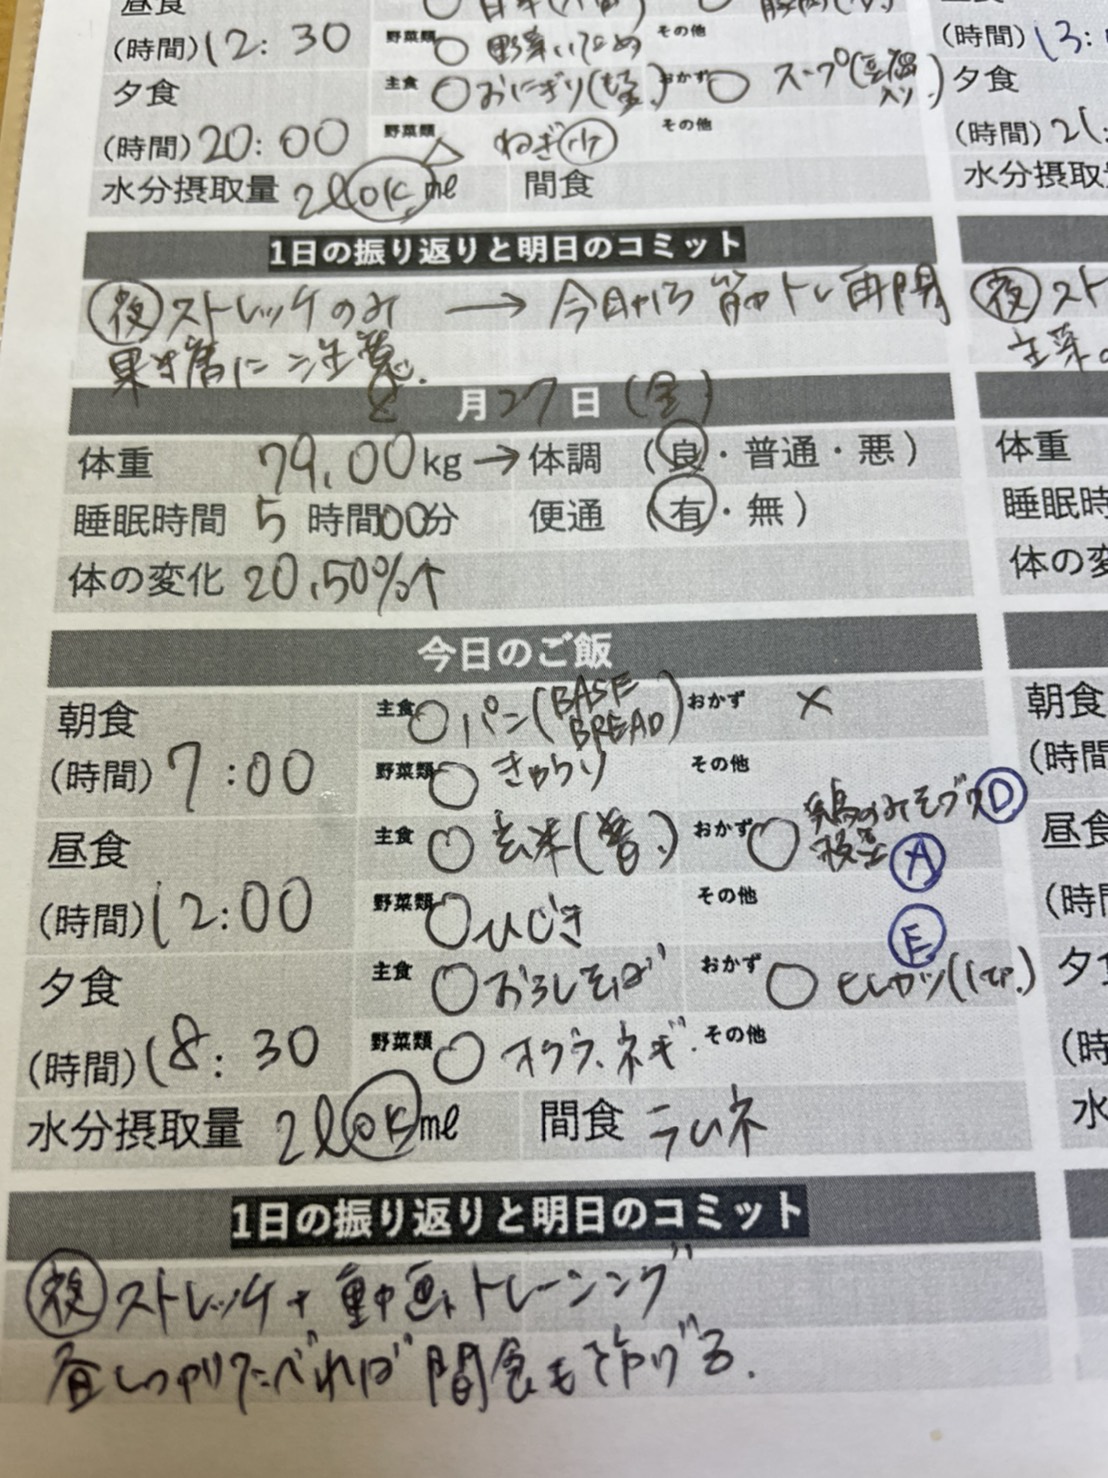 昼食
(時間) 12:30 野菜類 ○ 野菜いため その他
夕食 主食 ○ おにぎり( おかず ○ スープ(豆腐入り)
(時間) 20:00 野菜類 △ ねぎ㊙小 その他
水分摂取量 2l OK ml 間食
1日の振り返りと明日のコミット
夜 ストレッチのみ → 今日から筋トレ再開
果糖に注意.
8月27日(金)
体重 79.00kg → 体調 (良・普通・悪)
睡眠時間 5時間00分 便通 (有・無)
体の変化 20.50%↑
今日のご飯
朝食 主食 ○ パン(BASE BREAD) おかず ×
(時間) 7:00 野菜類 ○ きゅうり その他
昼食 主食 ○ 玄米(普.) おかず ○ 鶏のみそ D A
(時間) 12:00 野菜類 ○ ひじき その他 E
夕食 主食 ○ おろしそば おかず ○ ヒレカツ(1コ.)
(時間) 18:30 野菜類 ○ オクラ、ネギ. その他
水分摂取量 2l OK ml 間食 ラムネ
1日の振り返りと明日のコミット
夜 ストレッチ+動画トレーニング
昼しっかりたべれば間食も防げる.
(時間) 13:
夕食
(時間) 21:
水分摂取
夜 スト
主菜
体重
睡眠時
体の変
朝食
(時間
昼食
(時間
夕食
(時
水